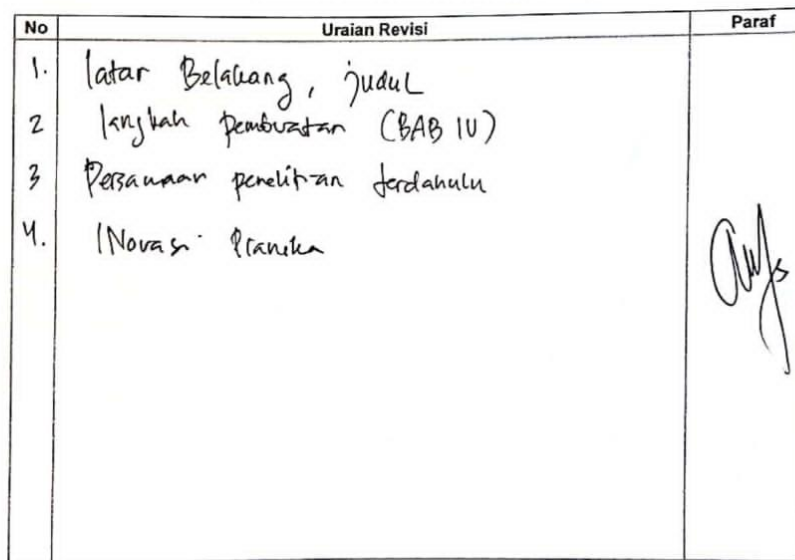 No Uraian Revisi Paraf
1. latar Belakang, judul
2 langkah pembuatan (BAB IV)
3 Persamaan penelitian terdahulu
4. INovasi